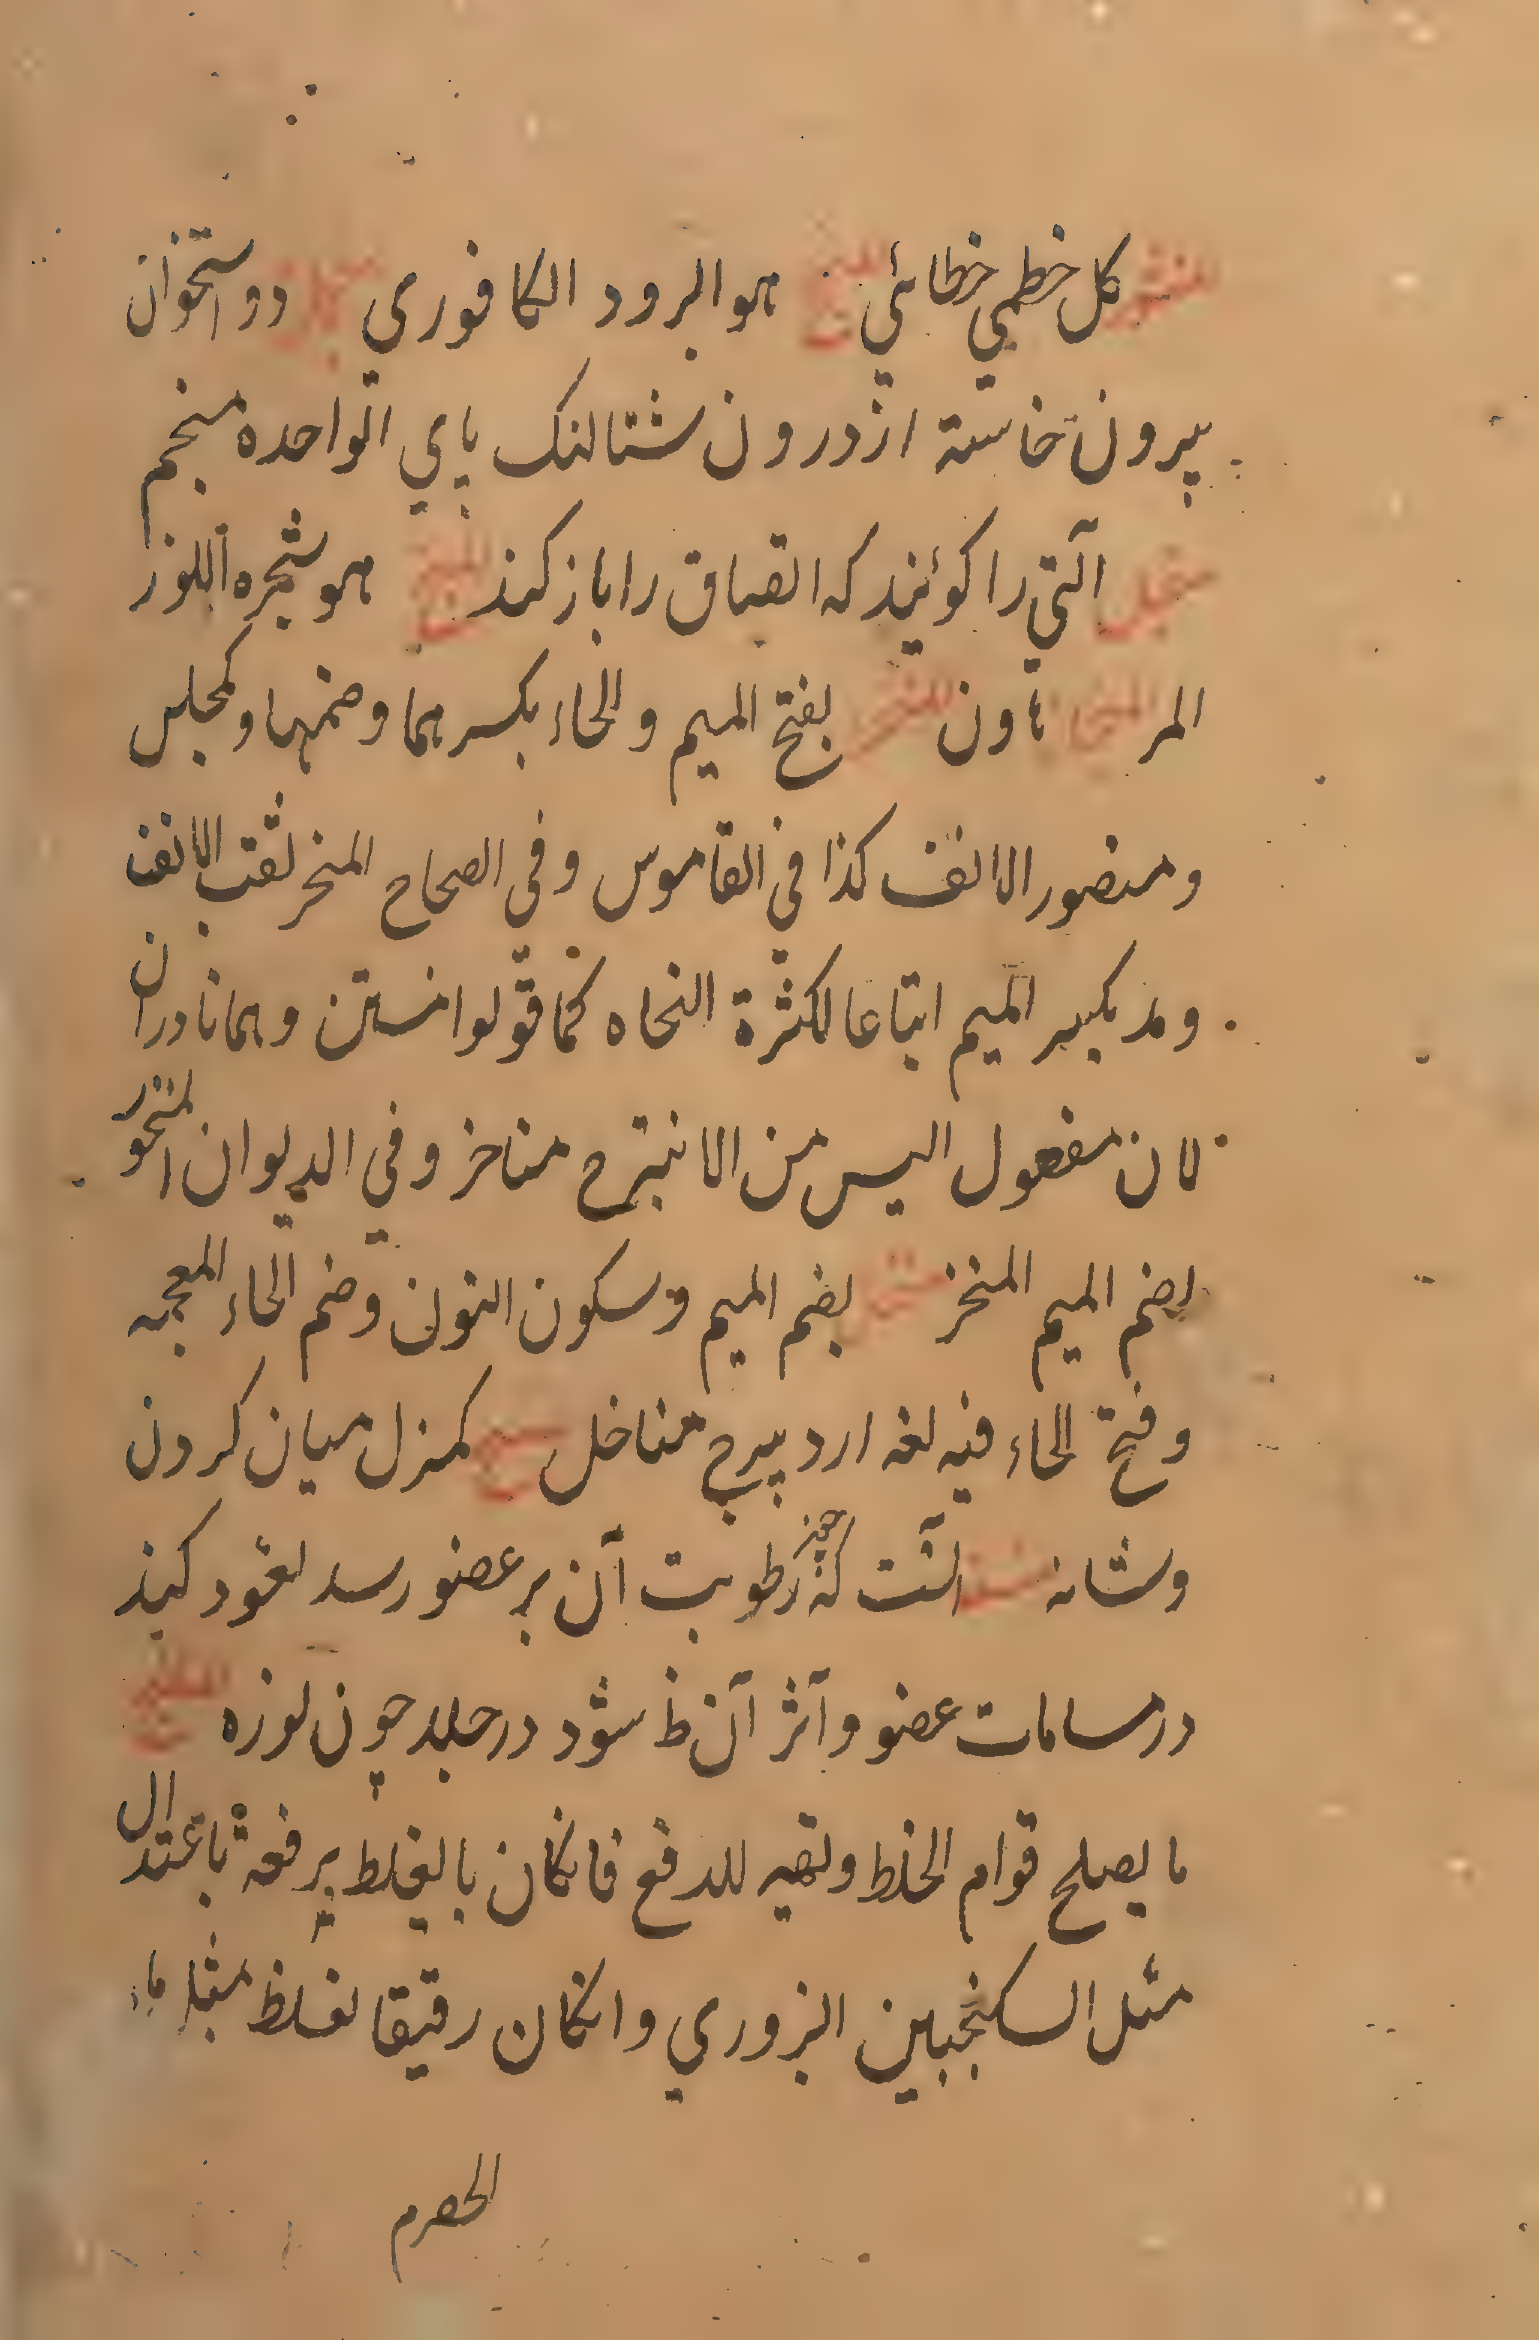 كل خطمي خطائي هو البرود الكافوري دو استخوان
بيرون خاسته از درون شتالنك پاي الواحده منجم
منجل آلتي را كوئيند كه انقباق را باز كند المنج هو شجره اللوز
المر هاون المنخر بفتح الميم والخاء بكسرهما وضمها وكمجلس
ومنصور الانف كذا في القاموس وفي الصحاح المنخر ثقب الانف
وقد بكسر الميم اتباعا لكثرة النحاه كما قولوا منتن وهما نادران
لان مفعول اليس من الابنية ج مناخر وفي الديوان المنخور
بضم الميم المنخر منخل بضم الميم وسكون النون وضم الخاء المعجمه
وفتح الخاء فيه لغه ارد بيز ج مناخل كمنزل ميان كردن
وشانه آنست كه چون رطوبت آن بر عضو رسد نفود كند
در مسامات عضو وآثر آن ظ شود در جلد چون لوزه المنضج
ما يصلح قوام الخلط وتهيه للدفع فانكان بالغلظ يرفعه باعتدال
مثل السكنجبين البزوري وانكان رقيقا يغلظ مثل ماء
الحصرم